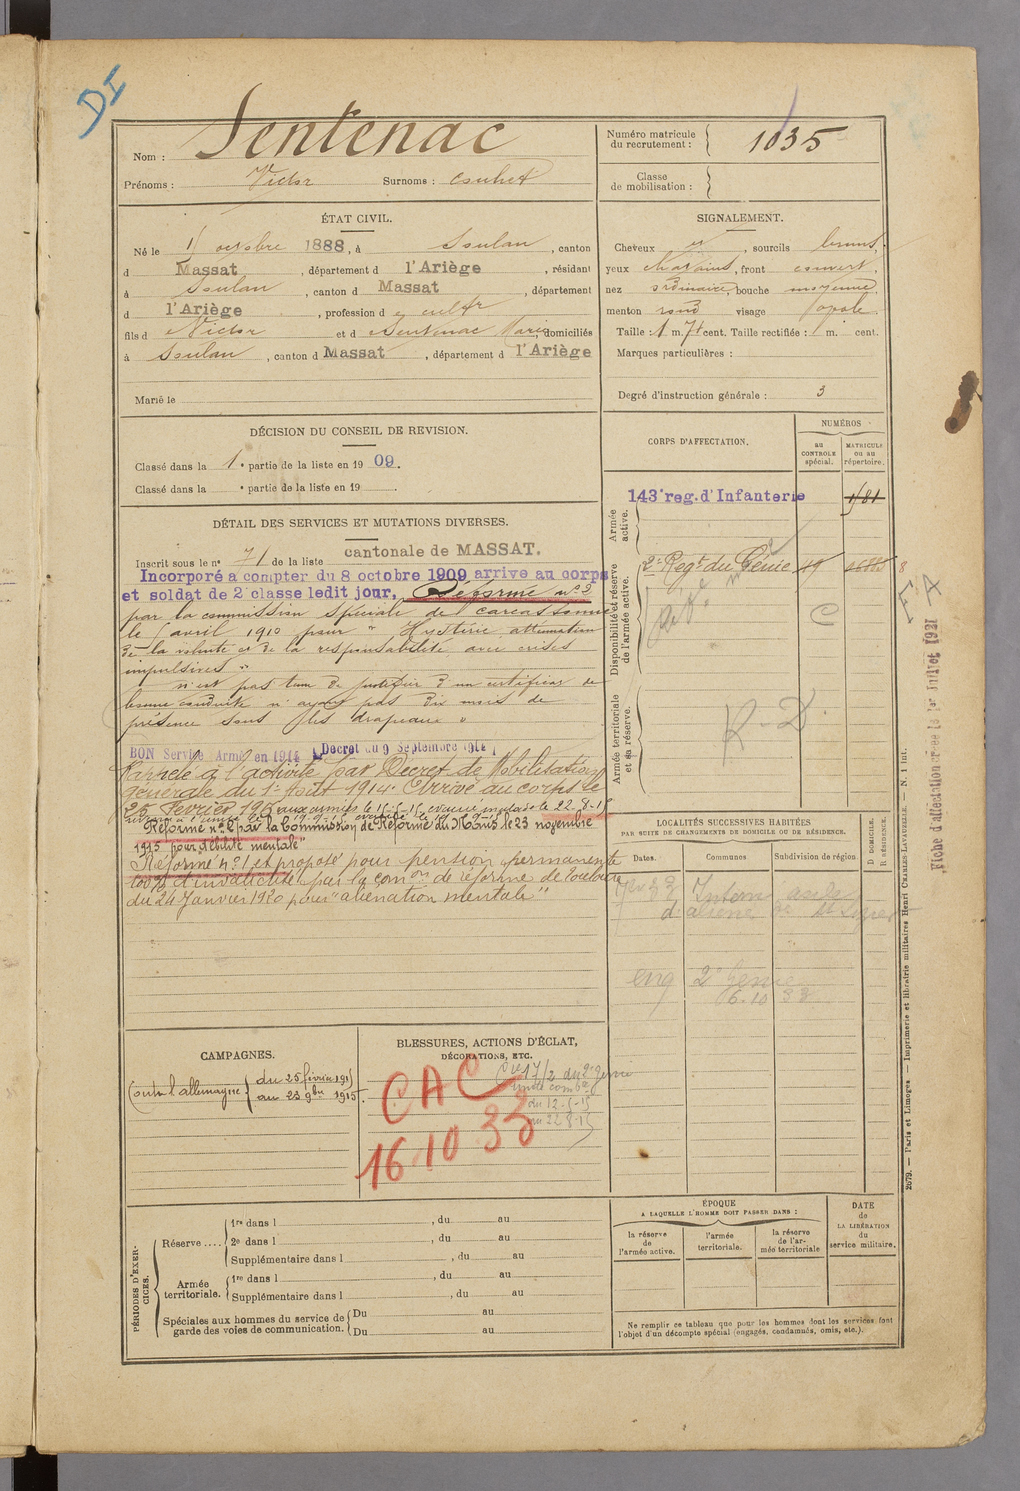 DI
Nom : Sentenac
Numéro matricule
du recrutement : 1035
Prénoms : Victor Surnoms :
Classe
de mobilisation :
ÉTAT CIVIL.
Né le 1 octobre 1888, à Soulan, canton
d Massat, département d l'Ariège, résidant
à Soulan, canton d Massat, département
d l'Ariège, profession d cultr
fils d Victor et d Sentenac Marie, domiciliés
à Soulan, canton d Massat, département d l'Ariège
Marié le
SIGNALEMENT.
Cheveux et, sourcils bruns,
yeux chatains, front couvert,
nez ordinaire, bouche moyenne,
menton rond visage
Taille : 1 m. 71 cent. Taille rectifiée : m. cent.
Marques particulières :
Degré d'instruction générale : 3
DÉCISION DU CONSEIL DE REVISION.
Classé dans la 1e partie de la liste en 1909.
Classé dans la e partie de la liste en 19 .
DÉTAIL DES SERVICES ET MUTATIONS DIVERSES.
Inscrit sous le n° 71 de la liste cantonale de MASSAT.
Incorporé a compter du 8 octobre 1909 arrive au corps
et soldat de 2e classe ledit jour, Réforme n° 2
par la commission spéciale de Carcassonne
le avril 1910 pour "Hystérie, atténuation
de la volonté et de la responsabilité avec crises
impulsives"
n'est pas tenu de justifier d'un certificat de
bonne conduite n'ayant pas dix mois de
présence sous les drapeaux.
BON Service Armé en 1914 (Decret du 9 Septembre 1914)
Rappelé à l'activité par Decret de Mobilisation
générale du 1er Août 1914. Arrivé au corps le
25 Février 1915 aux armées le 12-5-15 évacué malade le 22-8-15
Réformé n° 2 par la Commission de Réforme du Mans le 23 novembre
1915 pour "débilité mentale"
Réformé n° 1 et proposé pour pension permanente
100% d'invalidité par la Comon de réforme de Toulouse
du 24 Janvier 1920 pour "aliénation mentale"
CORPS D'AFFECTATION.
NUMÉROS
au
CONTROLE
spécial.
MATRICULE
ou au
répertoire.
Armée
active.
143e reg. d'Infanterie
Disponibilité et réserve
de l'armée active.
2e Régt du Génie
C
Armée territoriale
et sa réserve.
R. D.
LOCALITÉS SUCCESSIVES HABITÉES
PAR SUITE DE CHANGEMENTS DE DOMICILE OU DE RÉSIDENCE.
Dates. Communes Subdivision de région
D DOMICILE.
R RÉSIDENCE.
Intern asile
d'aliéné
2e Génie
16.10 33
CAMPAGNES.
Contre l'allemagne du 25 février 1915
au 23 9bre 1915
BLESSURES, ACTIONS D'ÉCLAT,
DÉCORATIONS, ETC.
Cie 17/2 du 2e génie
unité combte
du 12-5-15
au 22-8-15
CAC
16.10 33
PÉRIODES D'EXERCICES.
Réserve ....
1re dans l , du au
2e dans l , du au
Supplémentaire dans l , du au
Armée
territoriale.
1re dans l , du au
Supplémentaire dans l , du au
Spéciales aux hommes du service de
garde des voies de communication.
Du au
Du au
ÉPOQUE
A LAQUELLE L'HOMME DOIT PASSER DANS :
la réserve
de
l'armée active.
l'armée
territoriale.
la réserve
de l'ar-
mée territoriale
DATE
de
LA LIBÉRATION
du
service militaire.
Ne remplir ce tableau que pour les hommes dont les services font
l'objet d'un décompte spécial (engagés, condamnés, omis, etc.).
Fiche d'affectation créée le 1er Juillet 1921
2079. — Paris et Limoges — Imprimerie et librairie militaires Henri CHARLES-LAVAUZELLE. — N. 1 int.